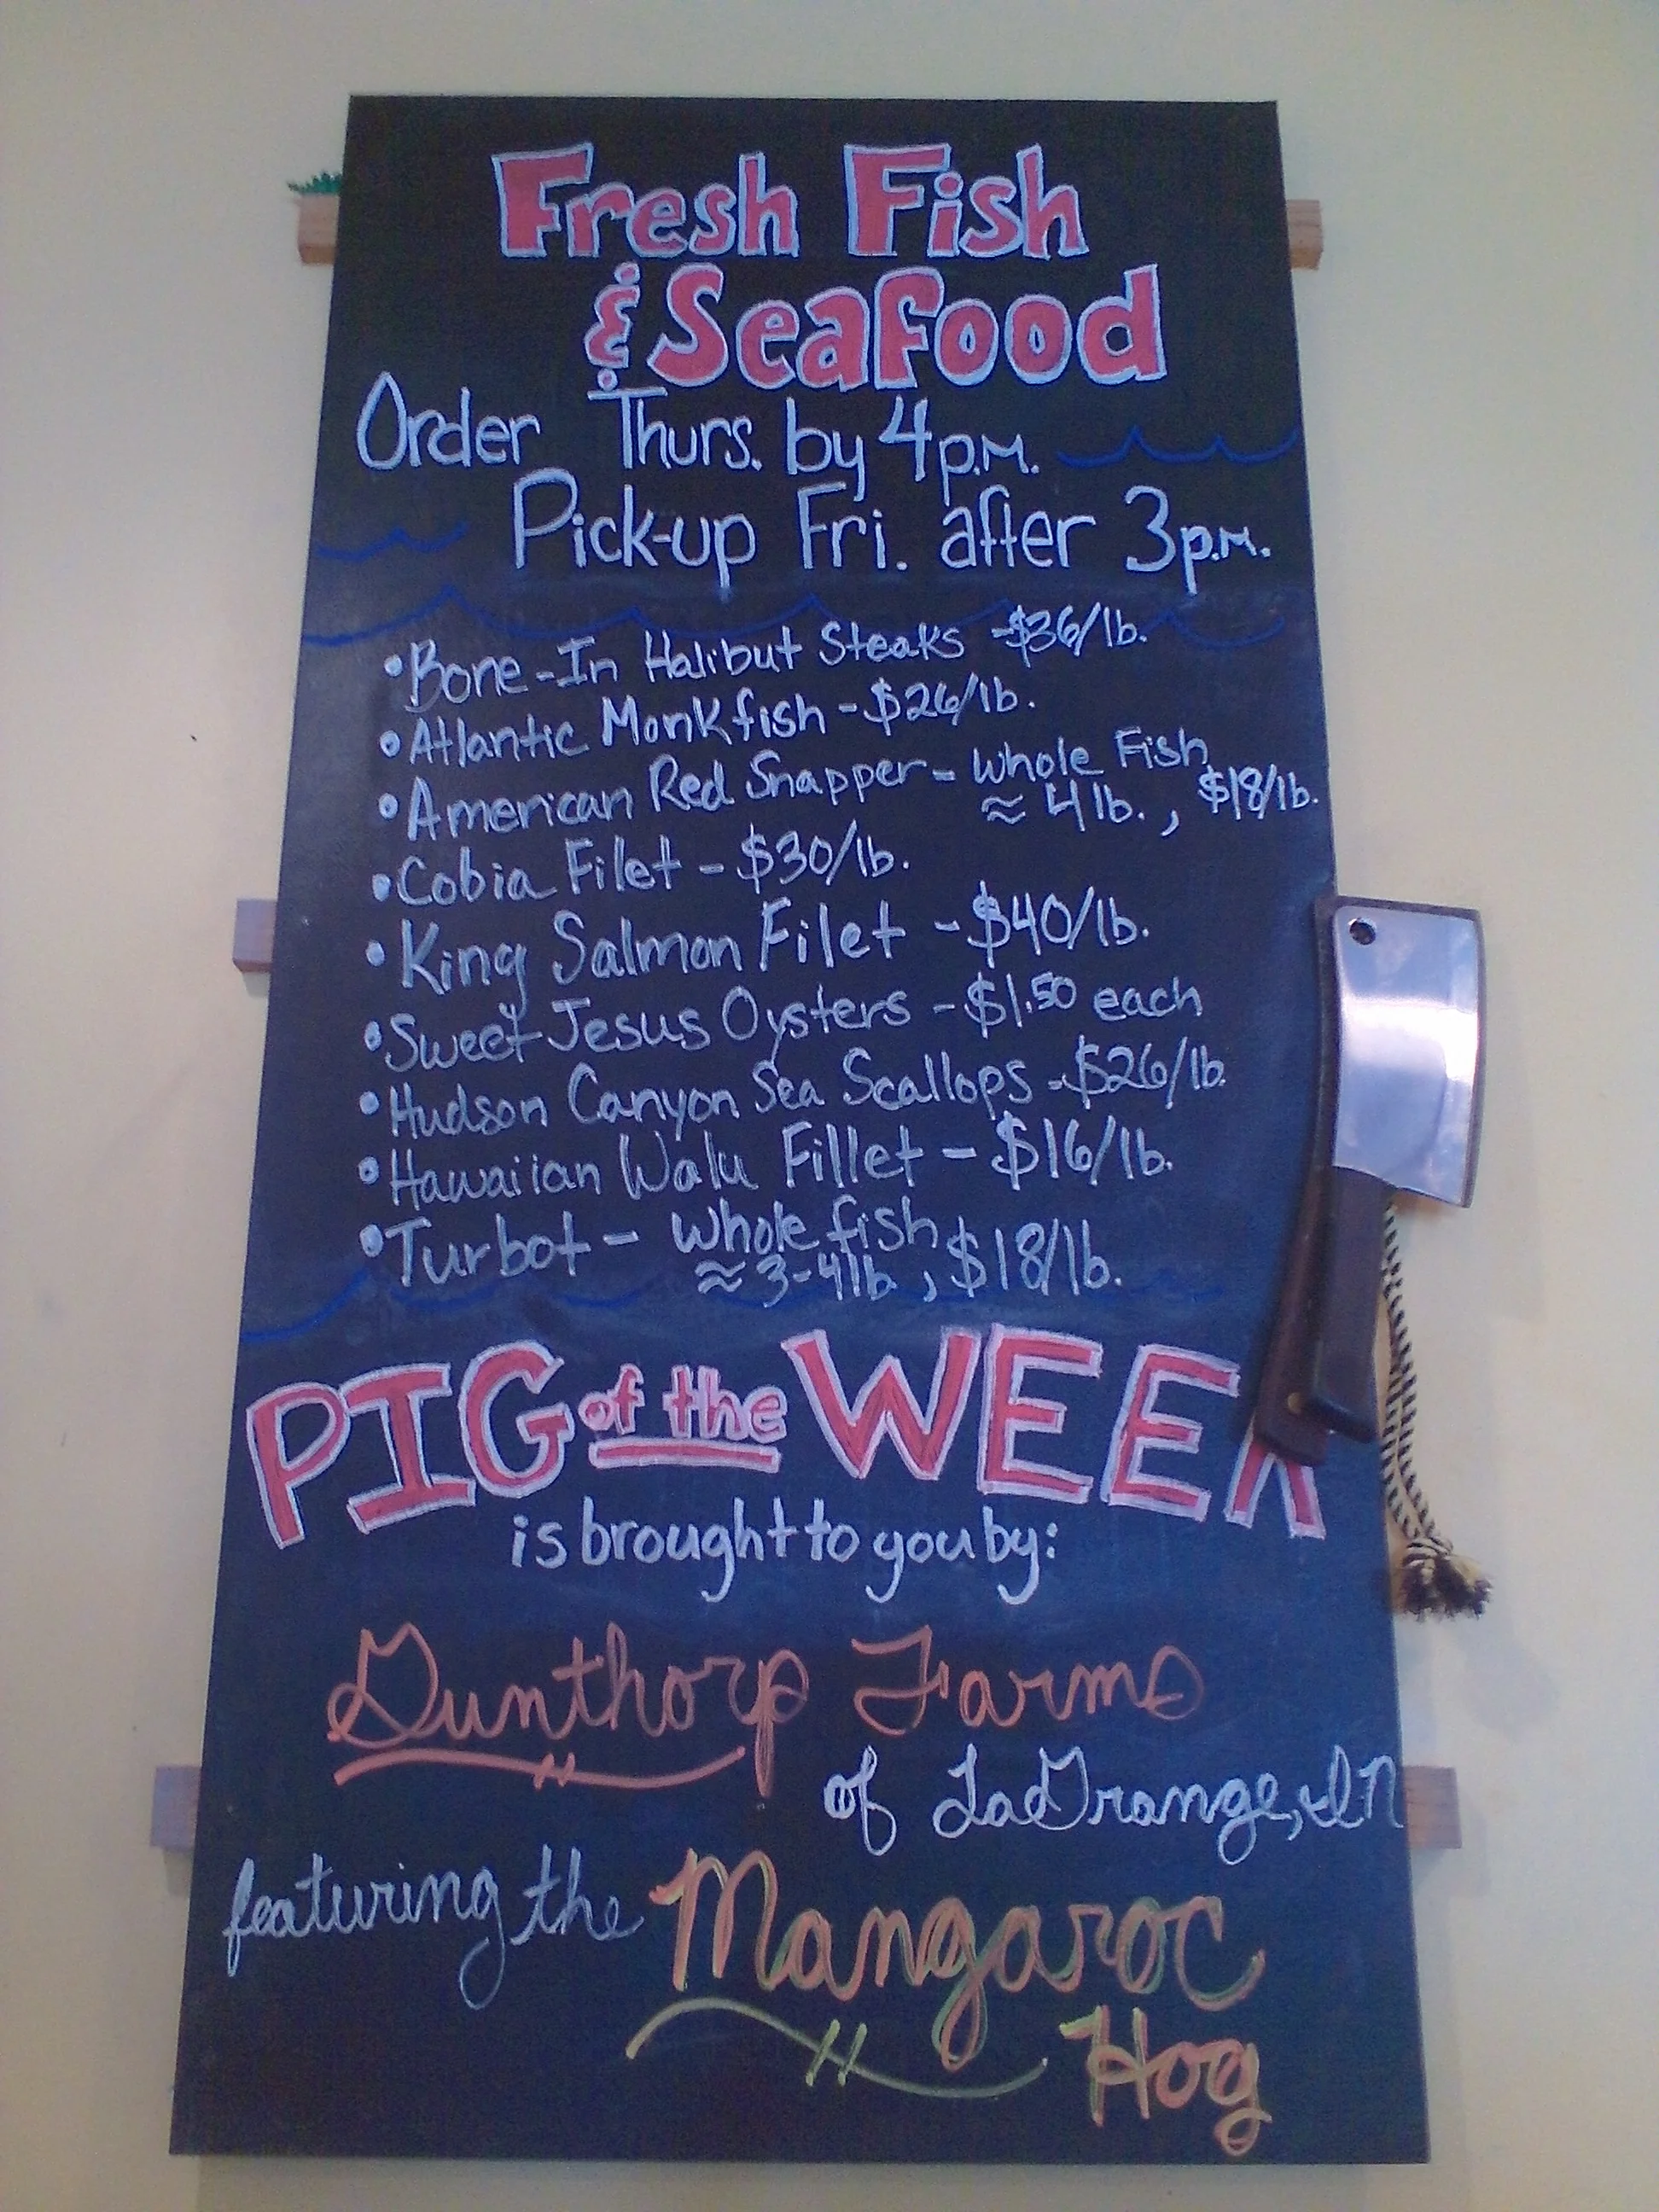 Fresh Fish
& Seafood
Order Thurs. by 4 p.m.
Pick-up Fri. after 3 p.m.
• Bone-In Halibut Steaks - $36/lb.
• Atlantic Monkfish - $26/lb.
• American Red Snapper - Whole Fish,
≈ 4 lb., $18/lb.
• Cobia Filet - $30/lb.
• King Salmon Filet - $40/lb.
• Sweet Jesus Oysters - $1.50 each
• Hudson Canyon Sea Scallops - $26/lb.
• Hawaiian Walu Fillet - $16/lb.
• Turbot - Whole fish,
≈ 3-4 lb., $18/lb.
PIG of the WEEK
is brought to you by:
Gunthorp Farms
of LaGrange, IN
featuring the Mangaroc
Hog